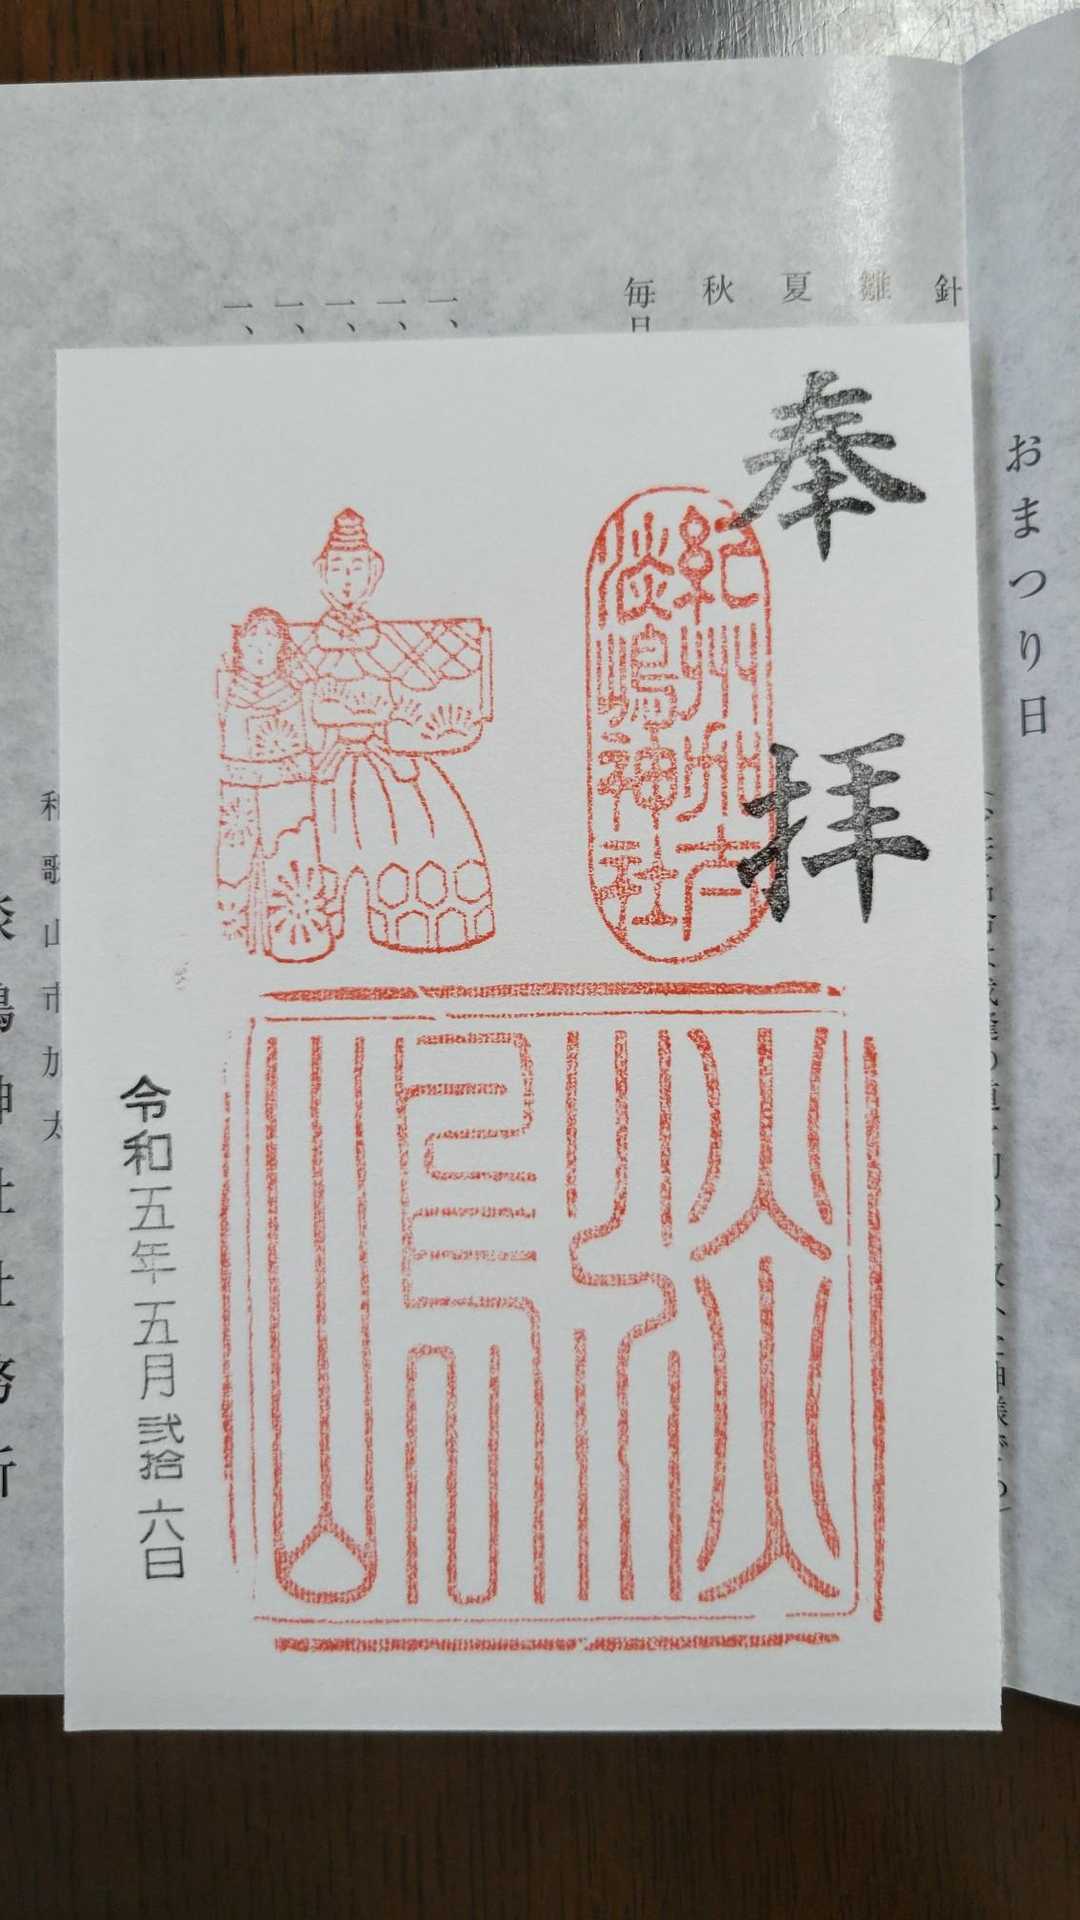 おまつり日
針
雛
夏
秋
毎日
一、
一、
一、
一、
一、
奉拝
紀州加太
淡嶋神社
淡嶋
令和五年五月弐拾六日
和歌山市加太
淡嶋神社社務所